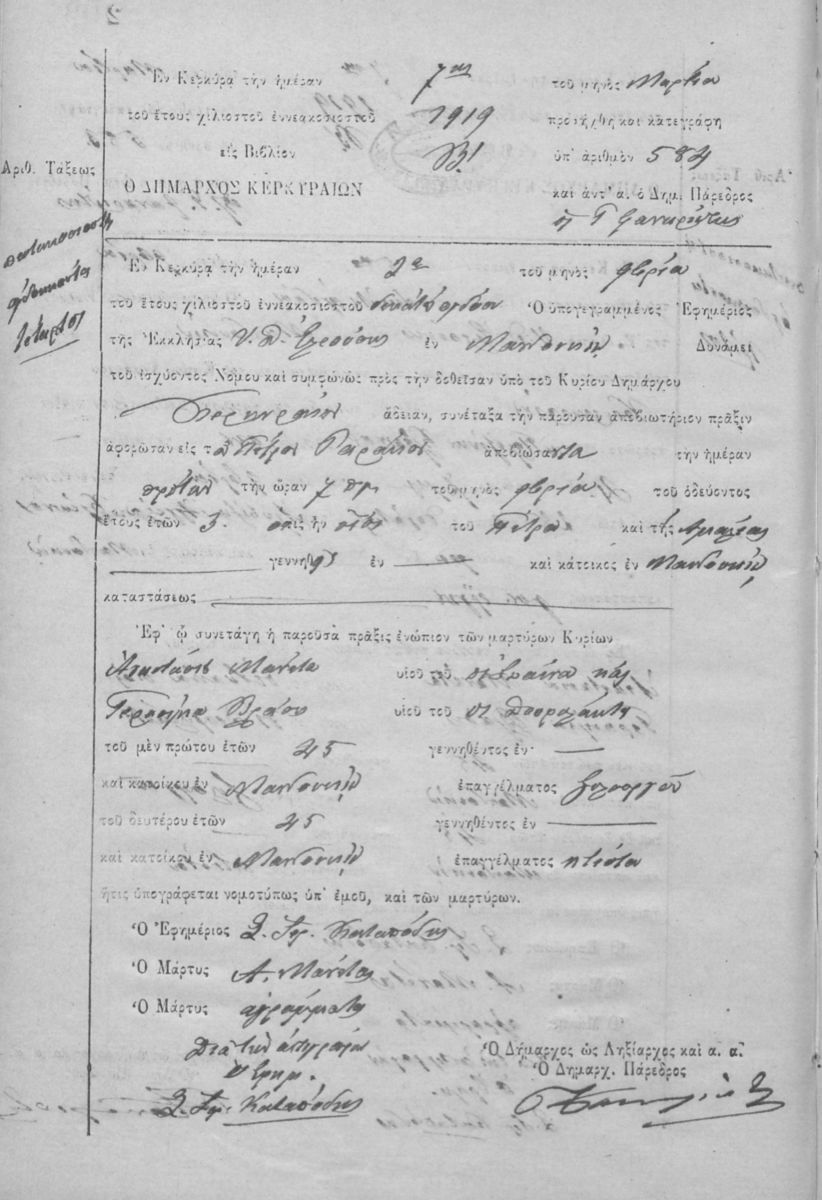 Ἐν Κερκύρᾳ τὴν ἡμέραν 7ην τοῦ μηνὸς Μαρτίου
τοῦ ἔτους χιλιοστοῦ ἐννεακοσιοστοῦ 1919 προσήχθη καὶ κατεγράφη
εἰς Βιβλίον Β! ὑπ' ἀριθμὸν 584
Ἀριθ. Τάξεως
Ὁ ΔΗΜΑΡΧΟΣ ΚΕΡΚΥΡΑΙΩΝ καὶ ἀντ' α. ὁ Δημ. Πάρεδρος
πεντακοσιοστὴ
ὀγδοηκοστὴ
τετάρτη
Ἐν Κερκύρᾳ τὴν ἡμέραν 2α τοῦ μηνὸς φβρίου
τοῦ ἔτους χιλιοστοῦ ἐννεακοσιοστοῦ Ὁ ὑπογεγραμμένος Ἐφημέριος
τῆς Ἐκκλησίας Υ. Θ. Ἐλεούσης ἐν Μανδουκίῳ Δυνάμει
τοῦ ἰσχύοντος Νόμου καὶ συμφώνως πρὸς τὴν δοθεῖσαν ὑπὸ τοῦ Κυρίου Δημάρχου
Κερκυραίων ἄδειαν, συνέταξα τὴν παροῦσαν ἀποβιωτήριον πρᾶξιν
ἀφορῶσαν εἰς τὸν Πέτρον ἀποβιώσαντα τὴν ἡμέραν
πρώτην τὴν ὥραν 7 πμ τοῦ μηνὸς φβρίου τοῦ ὁδεύοντος
ἔτους ἐτῶν 3. ὅστις ἦν υἱὸς τοῦ Πέτρου καὶ τῆς Ἀμαλίας
γεννηθεὶς ἐν καὶ κάτοικος ἐν Μανδουκίῳ
καταστάσεως
Ἐφ' ᾧ συνετάγη ἡ παροῦσα πρᾶξις ἐνώπιον τῶν μαρτύρων Κυρίων
Ἀναστάσιο Μανέτα υἱοῦ τοῦ
Γερασίμου Βλάχου υἱοῦ τοῦ
τοῦ μὲν πρώτου ἐτῶν 45 γεννηθέντος ἐν
καὶ κατοίκου ἐν Μανδουκίῳ ἐπαγγέλματος ξυλουργοῦ
τοῦ δευτέρου ἐτῶν 45 γεννηθέντος ἐν
καὶ κατοίκου ἐν Μανδουκίῳ ἐπαγγέλματος κτίστου
ἥτις ὑπογράφεται νομοτύπως ὑπ' ἐμοῦ, καὶ τῶν μαρτύρων.
Ὁ Ἐφημέριος Σ. Καταπόδης
Ὁ Μάρτυς Α. Μανέτας
Ὁ Μάρτυς ἀγράμματος
Διὰ τὸν ἀγράμματον Ὁ Δήμαρχος ὡς Ληξίαρχος καὶ α. α.
ὁ Ἐφημ. Ὁ Δημαρχ. Πάρεδρος
Σ. Καταπόδης